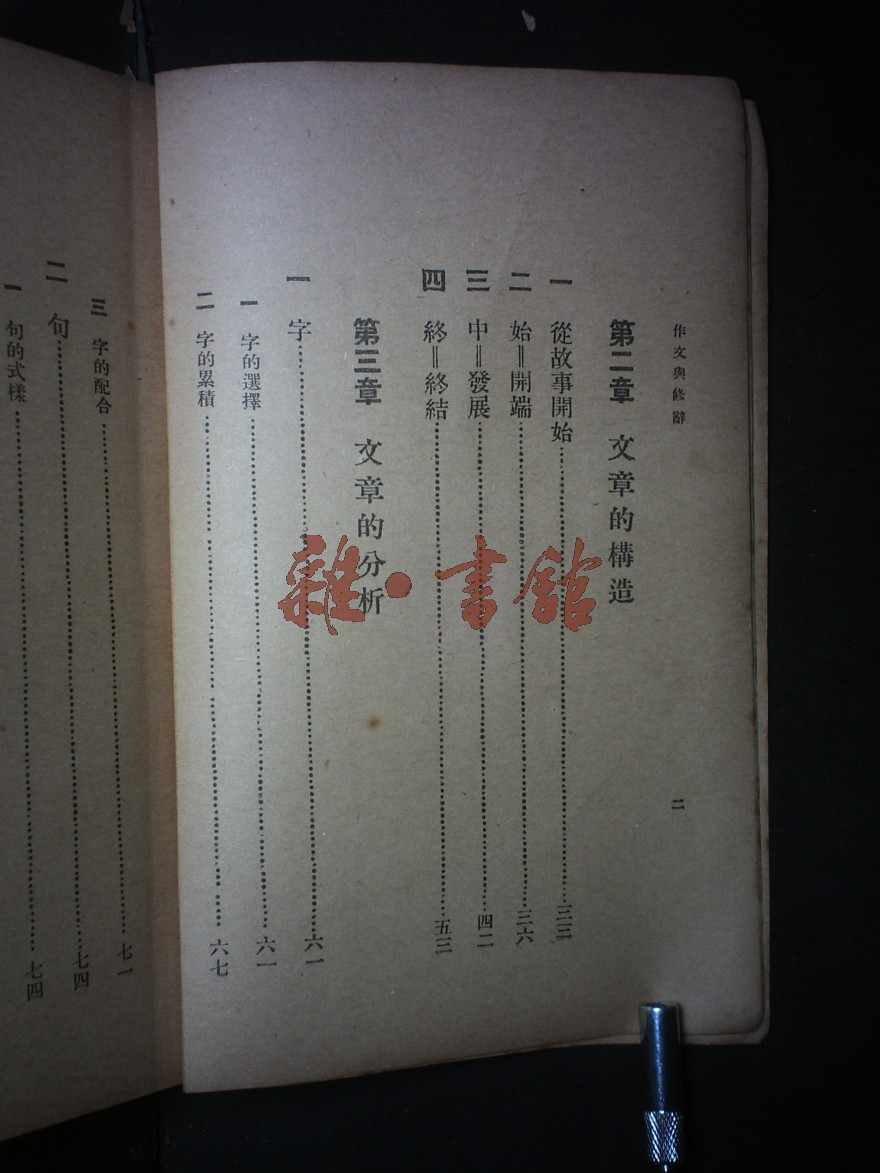 作文與修辭
二
第二章 文章的構造
一 從故事開始……三三
二 始＝開端……三六
三 中＝發展……四二
四 終＝終結……五三
第三章 文章的分析
一 字……六一
一 字的選擇……六一
二 字的累積……六七
三 字的配合……七一
二 句……七四
一 句的式樣……七四
雜·書館